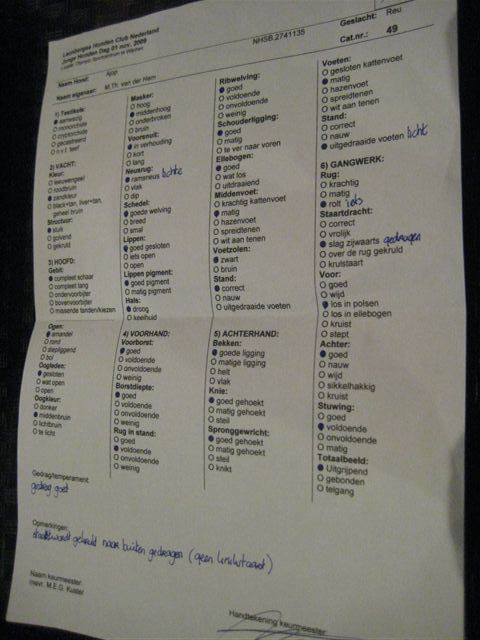 Leonbergse Honden Club Nederland
Jonge Honden Dag 01 nov. 2009
Locatie: Olympic Sportcentrum te Wijchen
NHSB.2741135
Geslacht: Reu
Cat.nr.: 49
Naam Hond: Ajop
Naam eigenaar: M.Th. van der Hem
1) Testikels:
aanwezig
monorchide
cryptorchide
gecastreerd
n.v.t. teef
2) VACHT:
Kleur:
leeuwengeel
roodbruin
zandkleur
black+tan, liver+tan,
geheel bruin
Structuur:
sluik
golvend
gekruld
3) HOOFD:
Gebit:
compleet schaar
compleet tang
ondervoorbijter
bovenvoorbijter
missende tanden/kiezen
Ogen:
amandel
rond
diepliggend
bol
Oogleden:
gesloten
wat open
open
Oogkleur:
donker
middenbruin
lichtbruin
te licht
Masker:
hoog
middenhoog
onderbroken
bruin
Voorsnuit:
in verhouding
kort
lang
Neusrug:
ramsneus lichte
vlak
dip
Schedel:
goede welving
breed
smal
Lippen:
goed gesloten
iets open
open
Lippen pigment:
goed pigment
matig pigment
Hals:
droog
keelhuid
4) VOORHAND:
Voorborst:
goed
voldoende
onvoldoende
weinig
Borstdiepte:
goed
voldoende
onvoldoende
weinig
Rug in stand:
goed
voldoende
onvoldoende
weinig
Ribwelving:
goed
voldoende
onvoldoende
weinig
Schouderligging:
goed
matig
te ver naar voren
Ellebogen:
goed
wat los
uitdraaiend
Middenvoet:
krachtig kattenvoet
matig
hazenvoet
spreidtenen
wit aan tenen
Voetzolen:
zwart
bruin
Stand:
correct
nauw
uitgedraaide voeten
5) ACHTERHAND:
Bekken:
goede ligging
matige ligging
helt
vlak
Knie:
goed gehoekt
matig gehoekt
steil
Spronggewricht:
goed gehoekt
matig gehoekt
steil
knikt
Voeten:
gesloten kattenvoet
matig
hazenvoet
spreidtenen
wit aan tenen
Stand:
correct
nauw
uitgedraaide voeten licht
6) GANGWERK:
Rug:
krachtig
matig
rolt iets
Staartdracht:
correct
vrolijk
slag zijwaarts gedragen
over de rug gekruld
krulstaart
Voor:
goed
wijd
los in polsen
los in ellebogen
kruist
stept
Achter:
goed
nauw
wijd
sikkelhakkig
kruist
Stuwing:
goed
voldoende
onvoldoende
matig
Totaalbeeld:
Uitgrijpend
gebonden
telgang
Gedrag/temperament:
gedrag goed
Opmerkingen:
staart wordt gekruld naar buiten gedragen (geen krulstaart)
Naam keurmeester:
mevr. M.E.G. Kuster
Handtekening keurmeester: